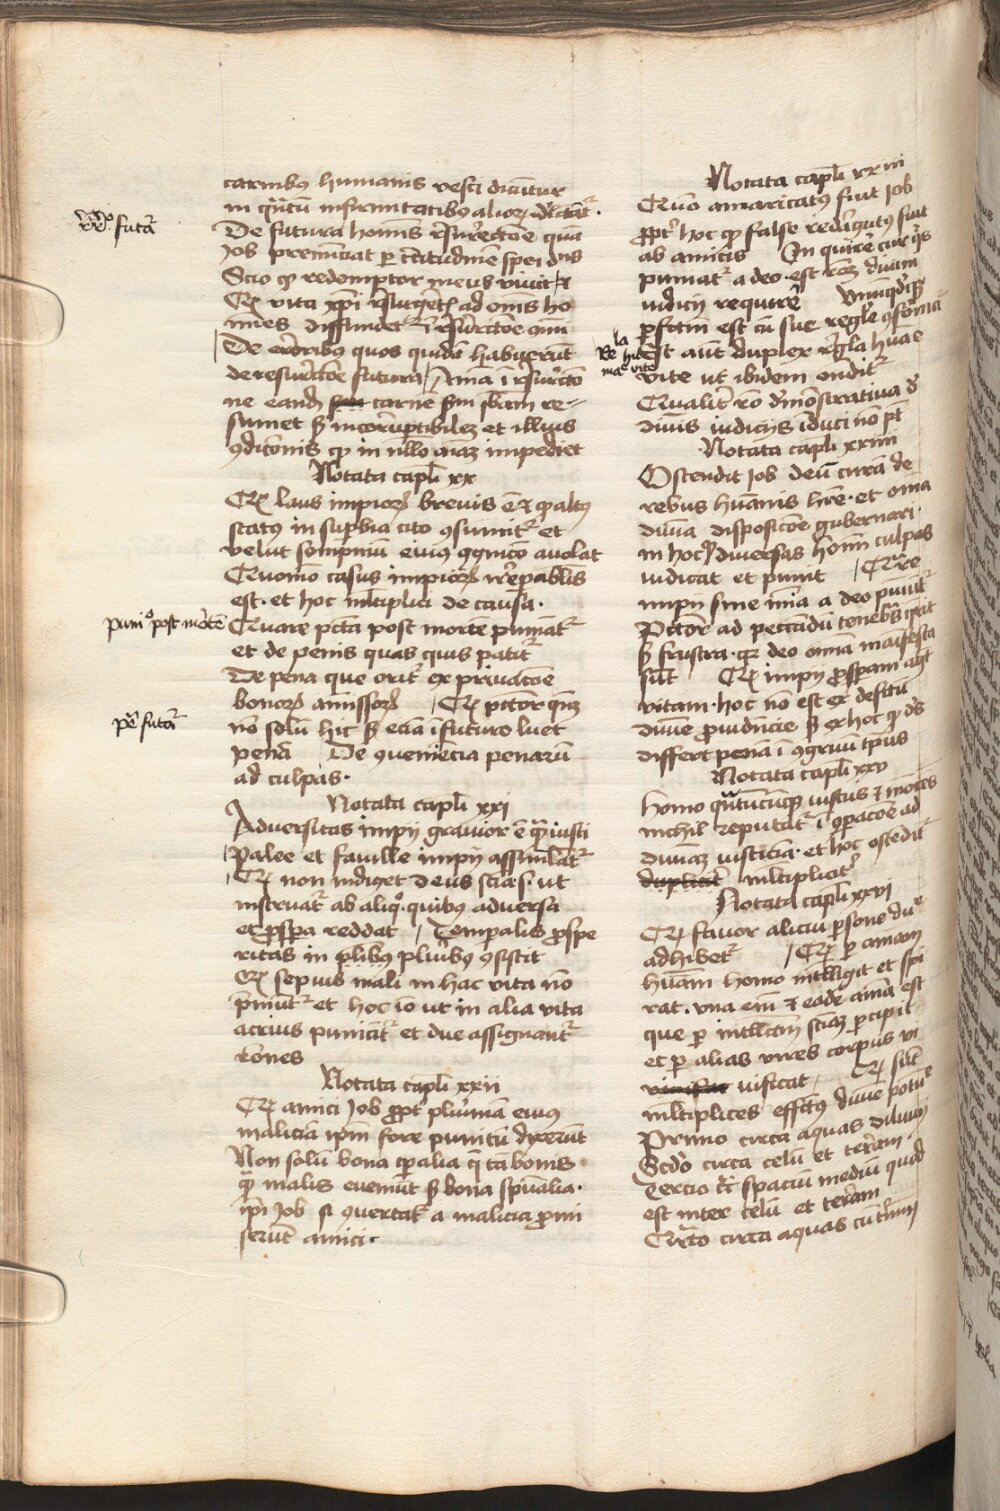 carnibus humanis vesci dicuntur
in quantum infirmitatibus aliorum delectantur.
resurrectio futura
De futura hominis resurrectione quam
Job prenunciat per certitudinem spei dicens
Scio quod redemptor meus vivit et
Quod vita christi resurgentis ad omnes ho
mines diffundetur in resurrectione communi
De erroribus quos quidam habuerunt
de resurrectione futura / Anima in resurrectio
ne eandem carnem secundum substantiam re-
sumet sed incorruptibilem et illius
conditionis quod in nullo animam impediet
Notata capituli xx
Quod laus impiorum brevis est et quod altus
status in superbia cito consumitur et
velut sompnium eius cognicio avolat
Quomodo casus impiorum irreparabilis
est. et hoc multiplici de causa.
punicio post mortem
Quare peccata post mortem puniantur
et de penis quas quis patitur
De pena que oritur ex privacione
bonorum amissorum / Quod peccator quisque
pene future
non solum hic sed eciam in futuro luet
penam De conveniencia penarum
ad culpas.
Notata capituli xxi
Adversitas impii gravior est quam iusti
Palee et faville impii assimilantur
Quod non indiget deus sciencia. ut
instruatur ab aliquo. quibus adversa
et prospera reddat / Temporalis prospe
ritas in pluribus consistit
Quod sepius mali in hac vita non
puniuntur et hoc ideo ut in alia vita
acrius puniantur et due assignantur
raciones
Notata capituli xxii
Quod amici Job propter plurimam eius
maliciam ipsum fore punitum dixerunt
Non solum bona temporalia que tam bonis
quam malis eveniunt sed bona spiritualia.
ipsi Job si convertatur a malicia promi
serunt amici.
Notata capituli xxiii
Quomodo amaricatus fuit Job
propter hoc quod false redargutus fuit
ab amicis An querere cur quis
puniatur a deo. est racionem divini
iudicii requirere Unumquodque
perfectum est cum sue regule conformatur
Regula humane vite
Est autem duplex regula humane
vite ut ibidem ostenditur
Qualiter racio demonstrativa de
divinis iudiciis induci non potest
Notata capituli xxiiii
Ostendit Job deum curam de
rebus humanis habere. et omnia
divina disposicione gubernari.
in hoc quod diversas hominum culpas
iudicat et punit / Quare
impii sine misericordia a deo puniuntur
Peccator ad peccandum tenebras querit
sed frustra. quia deo omnia manifesta
sunt Quod impii prosperam agunt
vitam. hoc non est ex defectu
divine providencie sed ex hoc quod deus
differt penam in congruum tempus
Notata capituli xxv
Homo quantumcumque iustus et innocens
nichil reputatur in comparacione ad
divinam iusticiam. et hoc ostenditur
dupliciter multipliciter
Notata capituli xxvi
Quod favor alicui persone du
adhibetur / Quod per animam
humanam homo intelligit et spi
rat. una enim et eadem anima est
que per intellectum scienciam percipit
et per alias vires corpus vi
vificat / Quod sunt
multiplices effectus divine potencie
Primo circa aquas diluvii
Secundo circa celum et terram.
Tercio circa spacium medium quod
est inter celum et terram
Quarto circa aquas